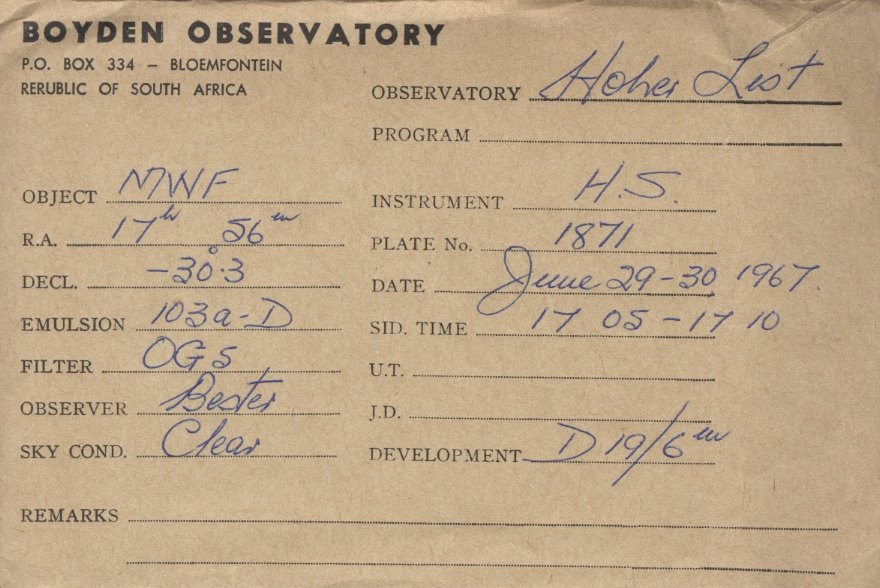 BOYDEN OBSERVATORY
P.O. BOX 334 – BLOEMFONTEIN
RERUBLIC OF SOUTH AFRICA
OBSERVATORY Hoher List
PROGRAM
OBJECT MWF
R.A. 17h 56m
DECL. -30°.3
EMULSION 103a-D
FILTER OG5
OBSERVER Bester
SKY COND. Clear
INSTRUMENT H.S.
PLATE No. 1871
DATE June 29-30 1967.
SID. TIME 17 05 - 17 10
U.T.
J.D.
DEVELOPMENT D19/6m
REMARKS